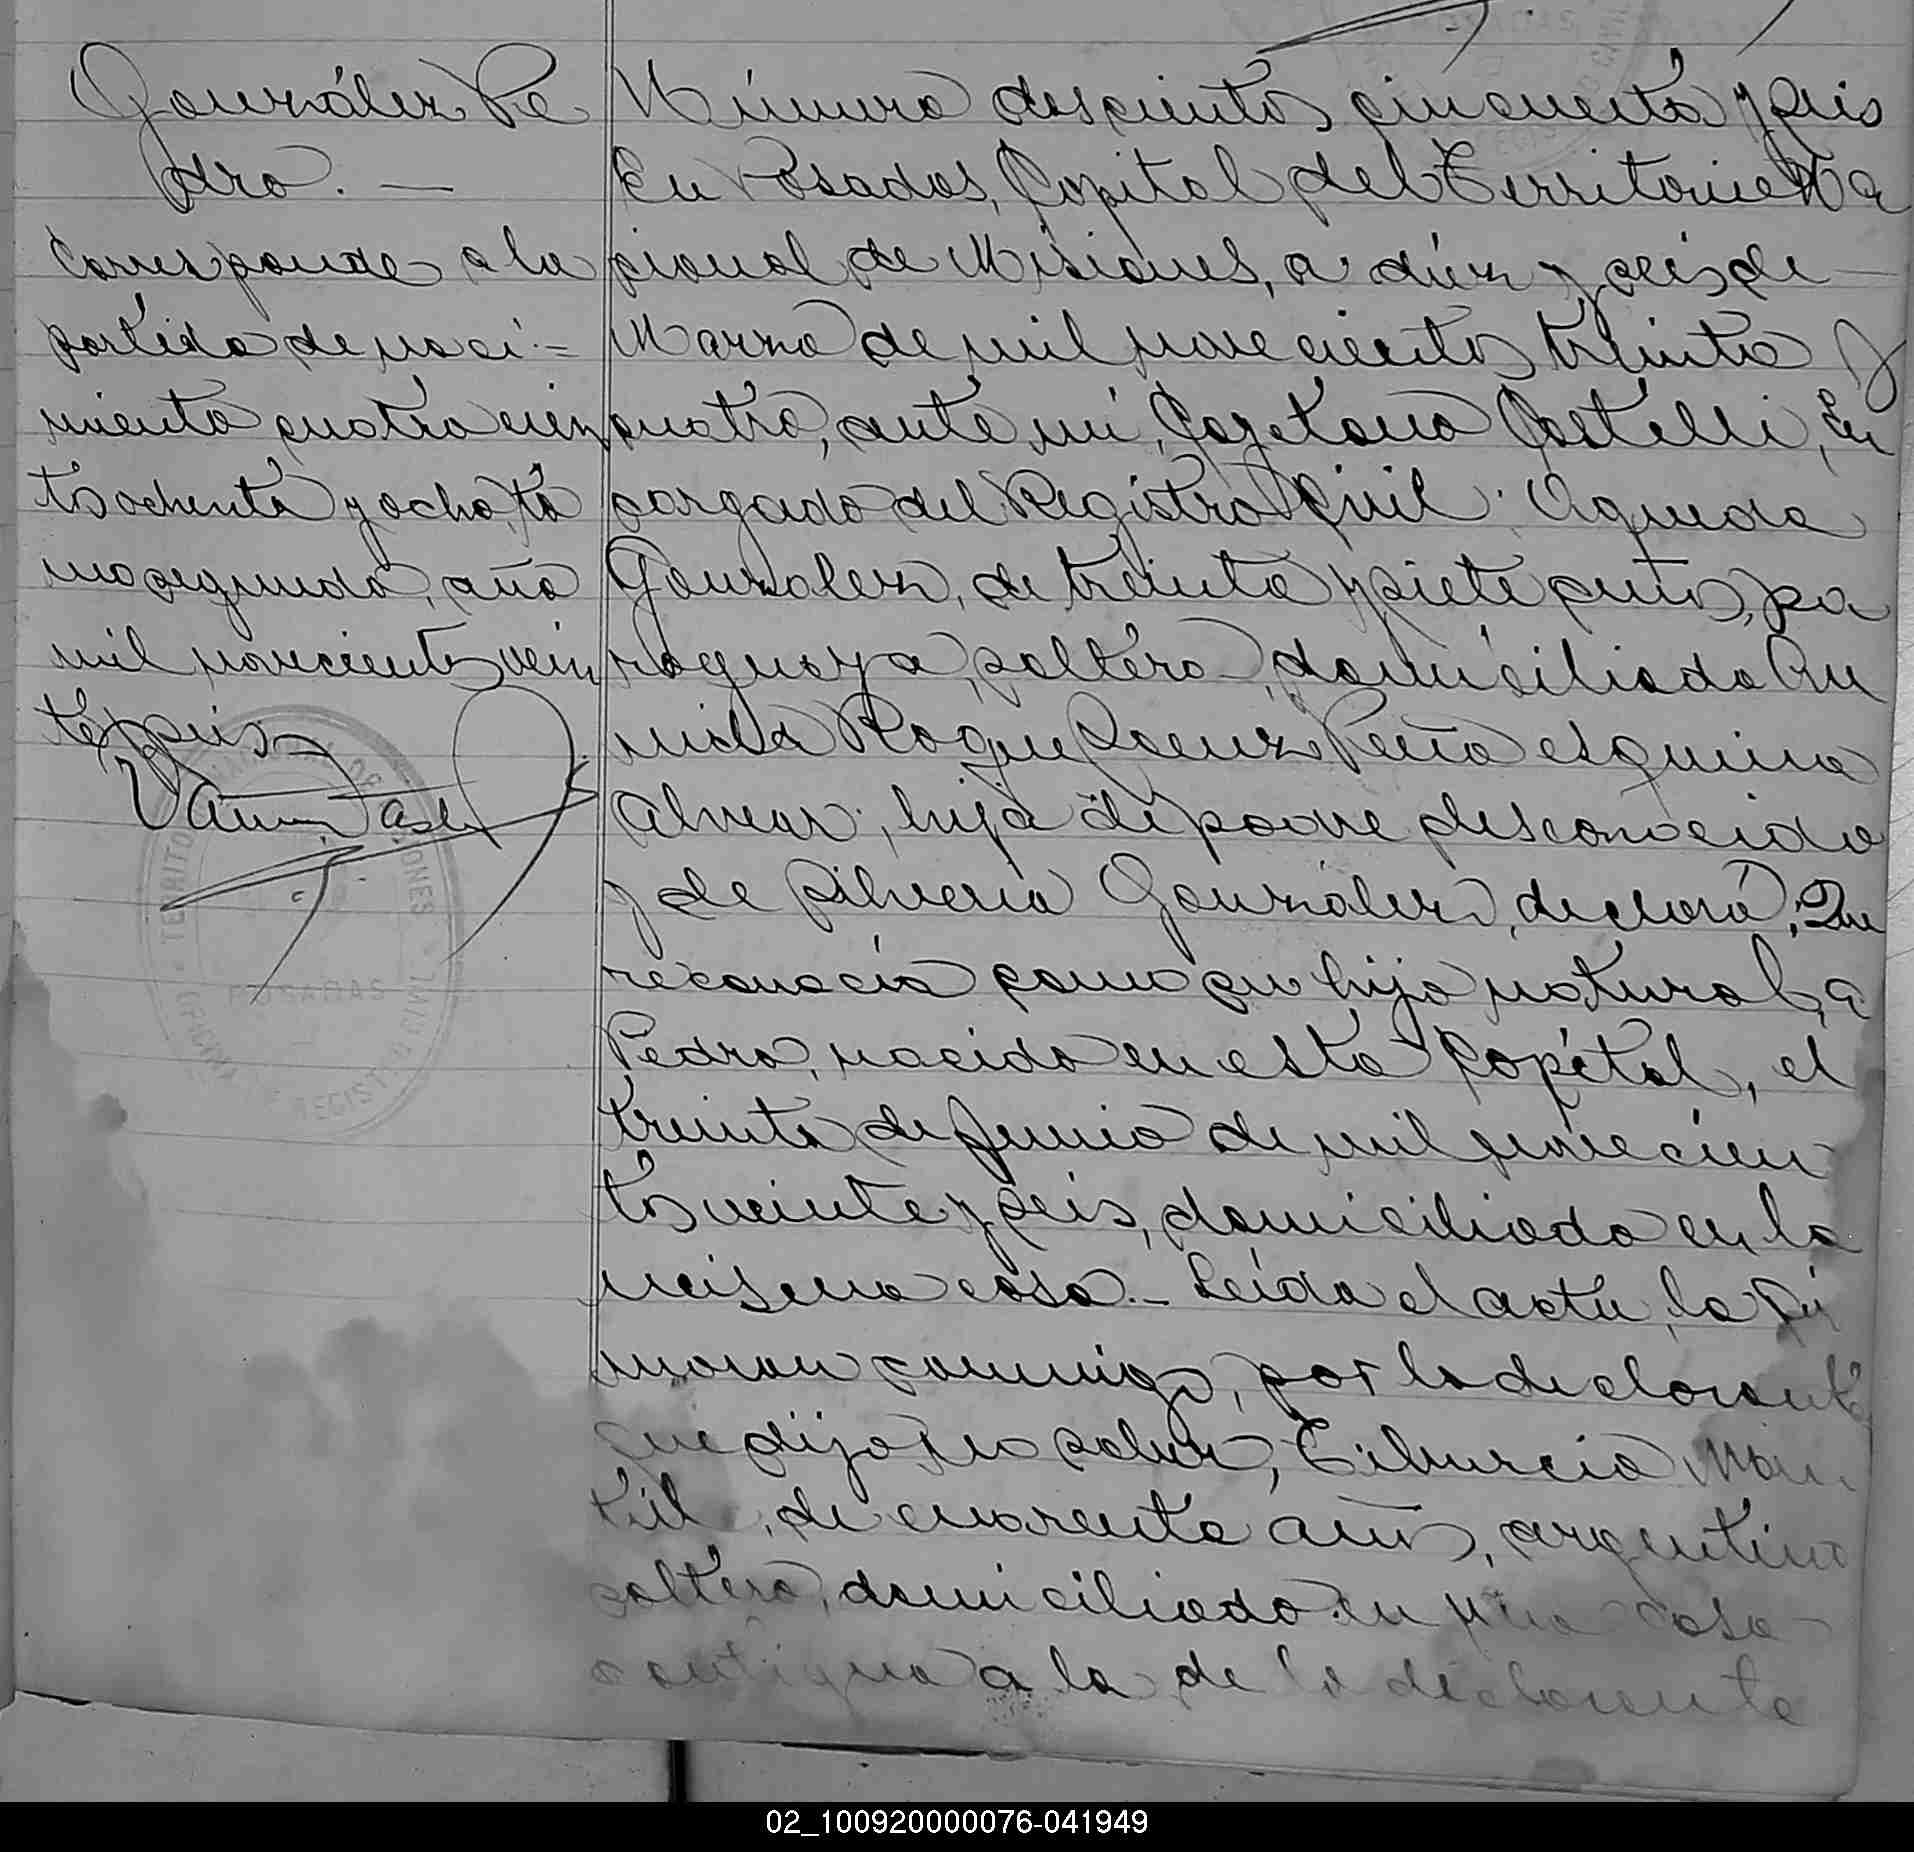 González Pe
dro. —
Corresponde a la
partida de naci =
miento cuatrocien
tos ochenta y ocho, to
mo segundo, año
mil novecientos vein
te y seis
TERRITORIO NACIONAL DE MISIONES
POSADAS
OFICINA DE REGISTRO CIVIL
Número doscientos cincuenta y seis
En Posadas, Capital del Territorio Na
cional de Misiones, a diéz y seis de —
Marzo de mil novecientos treinta y
cuatro, ante mí, Cayetano Castelli, En
cargado del Registro Civil: Agueda
Gonzalez, de treinta y siete años, pa
raguaya, soltera, domiciliada Ave
nida Roque Saenz Peña esquina
Alvear, hija de padre desconocido
y de Silveria González, declaró; Que
reconocía como su hijo natural, a
Pedro, nacido en esta Capital, el
treinta de Junio de mil novecien
tos veinte y seis, domiciliado en la
misma casa.- Leída el acta, la fir
maron conmigo, por la declarante
que dijo no saber, Tiburcio
de cuarenta años, argentino
soltero, domiciliado en una casa
contigua a la de la declarante
02_100920000076-041949